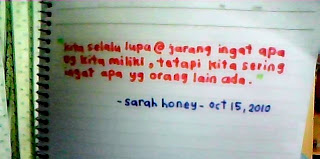 "kita selalu lupa @ jarang ingat apa
yg kita miliki, tetapi kita sering
ingat apa yg orang lain ada."
- sarah honey - oct 15, 2010